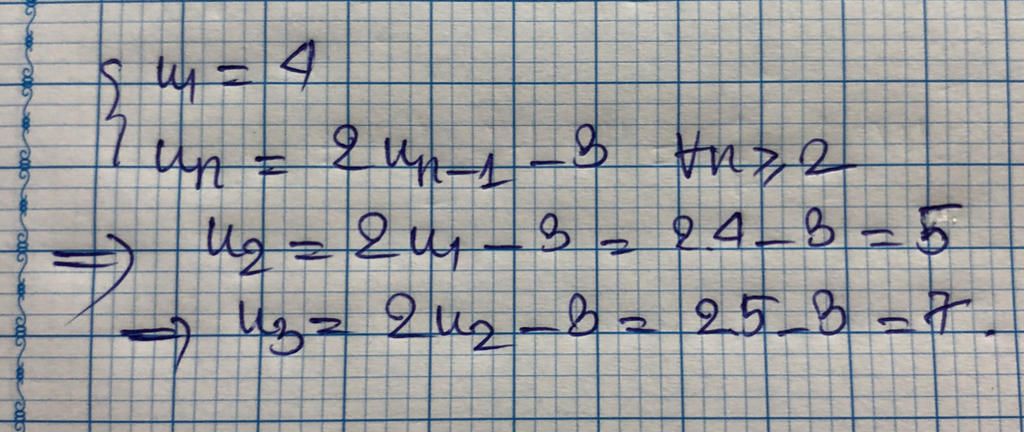 { u₁ = 4
uₙ = 2uₙ₋₁ - 3 ∀n ⩾ 2
⇒ u₂ = 2u₁ - 3 = 2.4 - 3 = 5
⇒ u₃ = 2u₂ - 3 = 2.5 - 3 = 7.